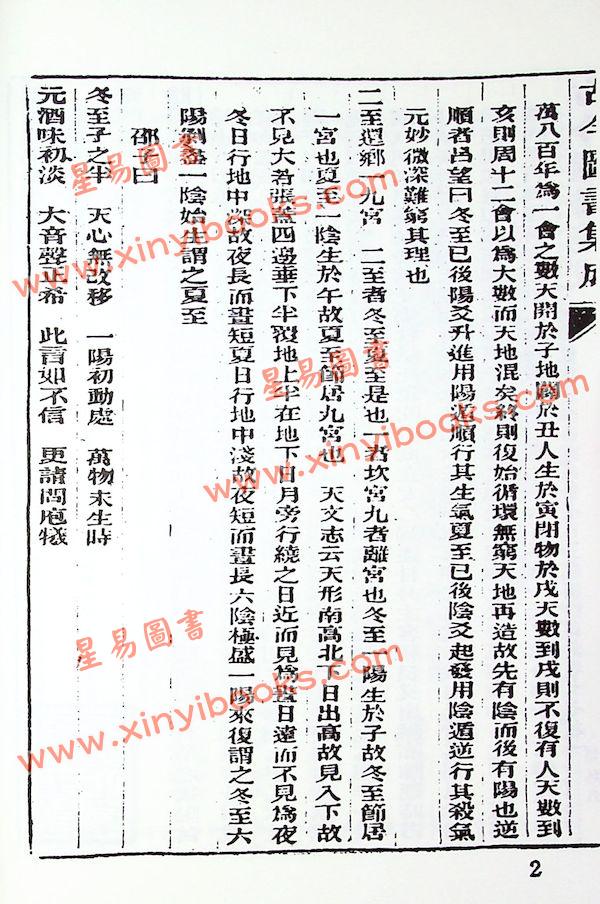 古今圖書集成
萬八百年為一會之數天開於子地闢於丑人生於寅閉物於戌天數到戌則不復有人天數到
亥則周十二會以為大數而天地混矣終則復始循環無窮天地再造故先有陰而後有陽也逆
順者呂望曰冬至已後陽爻升進用陽遁順行其生氣夏至已後陰爻起發用陰遁逆行其殺氣
元妙微深難窮其理也
二至還鄉一九宮　二至者冬至夏至是也一者坎宮九者離宮也冬至一陽生於子故冬至節居
一宮也夏至一陰生於午故夏至節居九宮也　天文志云天形南高北下日出高故見入下故
不見天若張蓋四邊垂下半覆地上半在地下日月旁行繞之日近而見為晝日遠而不見為夜
冬日行地中深故夜長而晝短夏日行地中淺故夜短而晝長六陰極盛一陽來復謂之冬至六
陽剝盡一陰始生謂之夏至
邵子曰
冬至子之半　天心無改移　一陽初動處　萬物未生時
元酒味初淡　大音聲正希　此言如不信　更請問庖犧
2
星易圖書
www.xinyibooks.com
星易圖書
www.xinyibooks.com
星易圖書
www.xinyibooks.com
星易圖書
www.xinyibooks.com